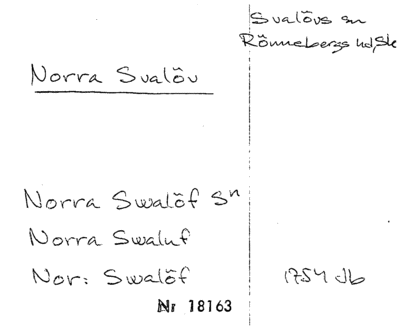 Svalövs sn
Rönnebergs hd, Sk
Norra Svalöv
Norra Swalöf Sn
Norra Swaluf
Nor: Swalöf 1754 Jb
Nr 18163